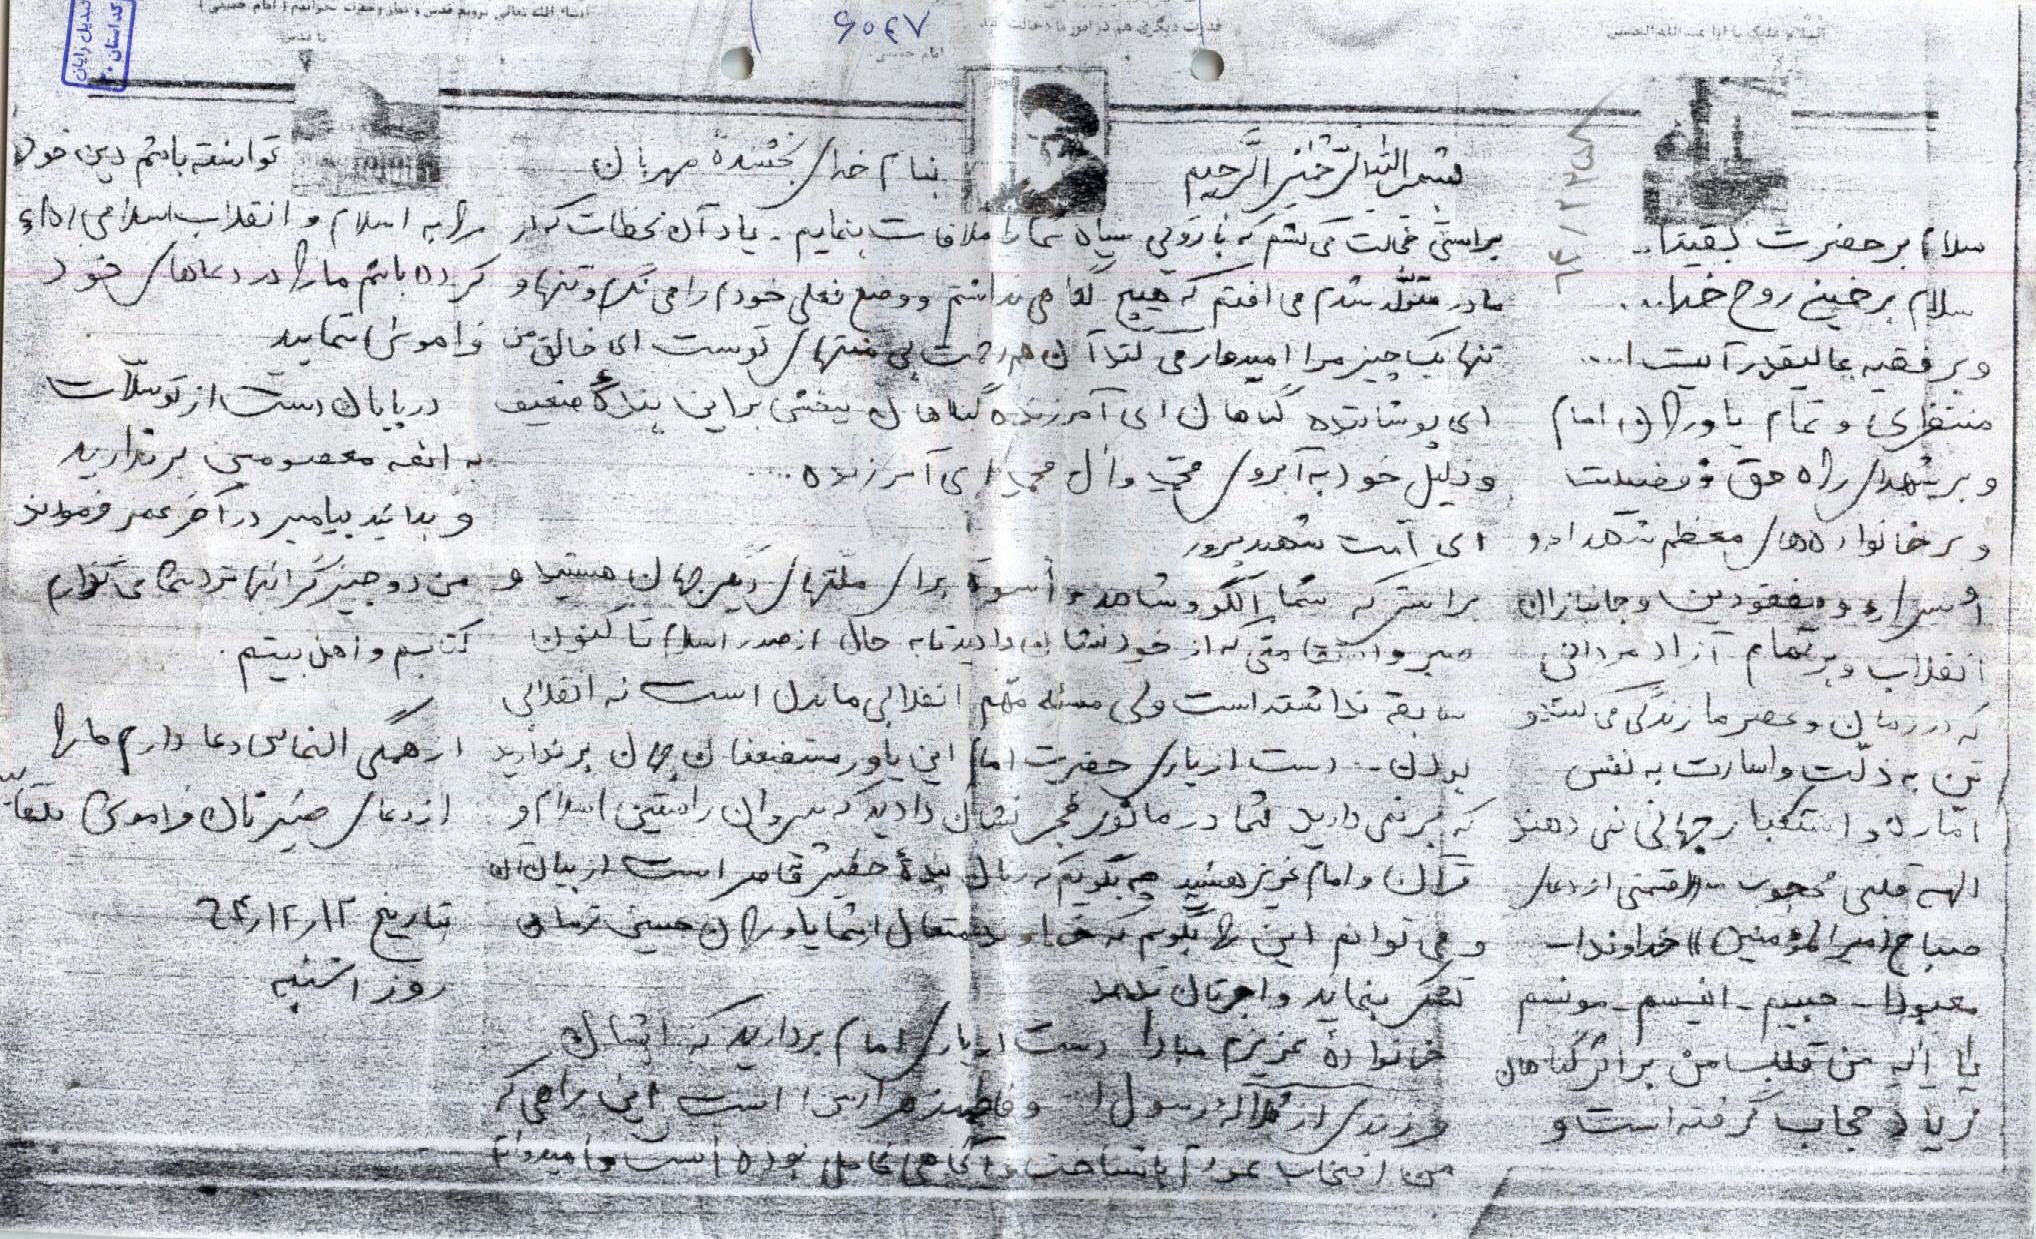 السلام علیک یا ابا عبدالله الحسین
قدرت دیگری هم در امور ما دخالت
امام خمینی
انشاء الله تعالی برویم قدس و نماز وحدت بخوانیم (امام خمینی)
یا قدس
۶۰۴۷
تبدیل رایان
کداستان ۲۰
بسم الله الرحمن الرحیم
سلام بر حضرت بقیة ا..
سلام بر خمینی روح خدا..
و بر فقیه عالیقدر آیت ا....
منتظری و تمام یاوران امام
و بر شهدای راه حق و فضیلت
و بر خانواده‌های معظم شهدا و
اسراء و مفقودین و جانبازان
انقلاب و بر تمام آزاد مردانی
که در زمان و عصر ما زندگی می کنند و
تن به ذلّت و اسارت به نفس
امّاره و استکبار جهانی نمی دهند
الهی قلبی محجوب ((قسمتی از دعای
صباح امیرالمؤمنین)) خداوندا-
معبودا- حبیبم- انیسم- مونسم
یا الهی من قلب من بر اثر گناهان
زیاد حجاب گرفته است و
بنام خدای بخشندهٔ مهربان
براستی خجالت می کشم که با روی سیاه شما را ملاقات بنمایم- یاد آن لحظات که از
مادر متولّد شدم می افتم که هیچ گناهی نداشتم و وضع فعلی خودم را می نگرم و تنها و
تنها یک چیز مرا امیدوار می کند آن هم رحمت بی منتهای توست ای خالق من
ای پوشاننده گناهان ای آمرزنده گناهان ببخش بر این بندهٔ ضعیف
و ذلیل خود به آبروی محمد و آل محمد ای آمرزنده ....
ای امت شهیدپرور
براستی که شما الگو و شاهد و اسوهٔ برای ملّتهای دیگر جهان هستید و
صبر و استقامتی که از خود نشان دادید تا به حال از صدر اسلام تا کنون
سابقه نداشته است ولی مسئله مهم انقلابی ماندن است نه انقلابی
بودن.. دست از یاری حضرت امام این یاور مستضعفان جهان برندارید
که بر نمی دارید شما در مانور فجر نشان دادید که پیروان راستین اسلام و
قرآن و امام عزیز هستید چه بگویم که زبان بندهٔ حقیر قاصر است از بیان آن
و می توانم این را بگویم که خداوند متعال از شما یاوران حسین زمان
تشکر بنماید و اجرتان بدهد
خانوادهٔ عزیزم مبادا دست از یاری امام بردارید که ایشان
فرزندی از سلاله رسول ا.. و فاطمه زهرا (س) است این راهی که
من انتخاب نمودم با شناخت و آگاهی کامل بوده است و امیدوارم
توانسته باشم دین خود
را به اسلام و انقلاب اسلامی اداء
کرده باشم ما را در دعاهای خود
فراموش ننمایید
در پایان دست از توسّلات
به ائمه معصومین برندارید
و بدانید پیامبر در آخر عمر فرمودند
من دو چیز گرانبها نزد شما می گذارم
کتابم و اهل بیتم.
از همگی التماس دعا دارم ما را
از دعای خیرتان فراموش نکنید
تاریخ ۶۴،۱۲،۱۲
روز اشنبه